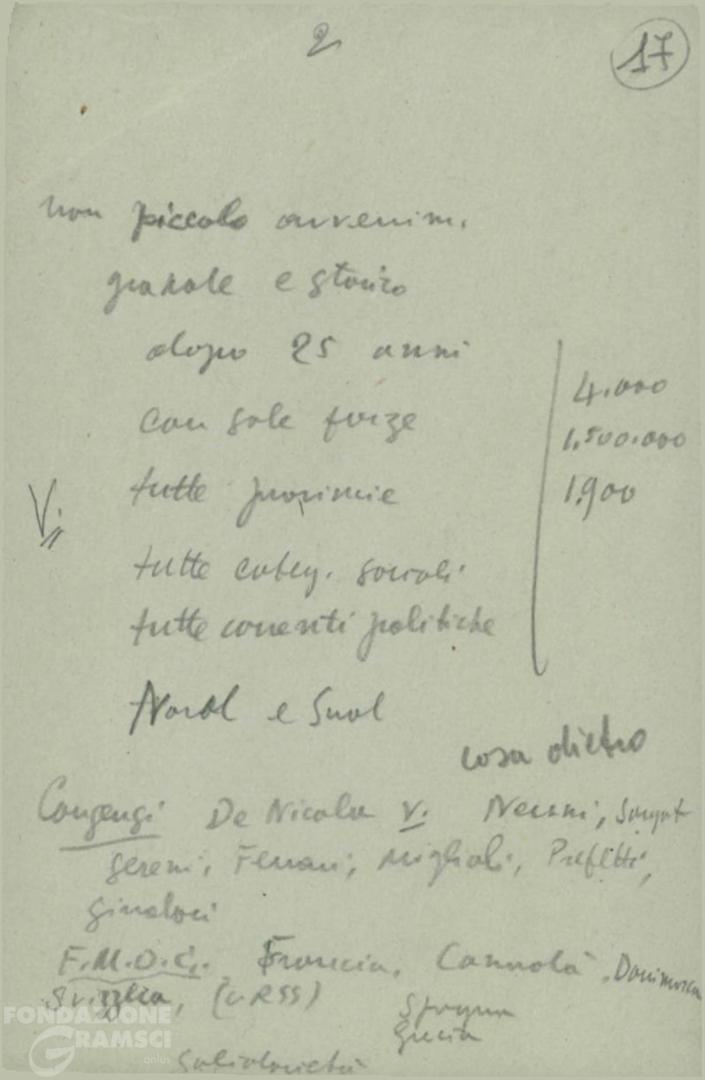 2
17
non piccolo avvenim.
grande e storico
dopo 25 anni
con sole forze
tutte provincie
tutte categ. sociali
tutte correnti politiche
Nord e Sud
4.000
1.500.000
1.900
V.
cosa dietro
De Nicola V. Nenni,
Sereni, Ferrari, Miglioli, Prefetti,
sindaci
F.M.D.C. Francia, Canadà, Danimarca
Svizzera, (URSS) Spagna
Grecia
Solidarietà
FONDAZIONE
GRAMSCI
onlus